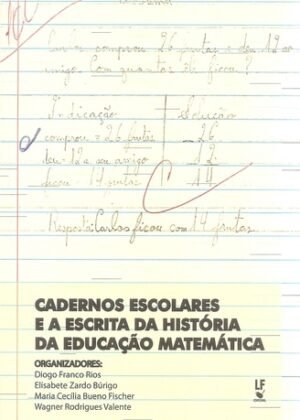 Carlos comprou 26 frutas e deu 12 ao
amigo. Com quantas êle ficou?
Indicação Solução
comprou = 26 frutas - 26
deu = 12 a seu amigo 12
ficou = 14 frutas 14
Resposta: Carlos ficou com 14 frutas.
CADERNOS ESCOLARES
E A ESCRITA DA HISTÓRIA
DA EDUCAÇÃO MATEMÁTICA
ORGANIZADORES:
Diogo Franco Rios
Elisabete Zardo Búrigo
Maria Cecília Bueno Fischer
Wagner Rodrigues Valente
LF